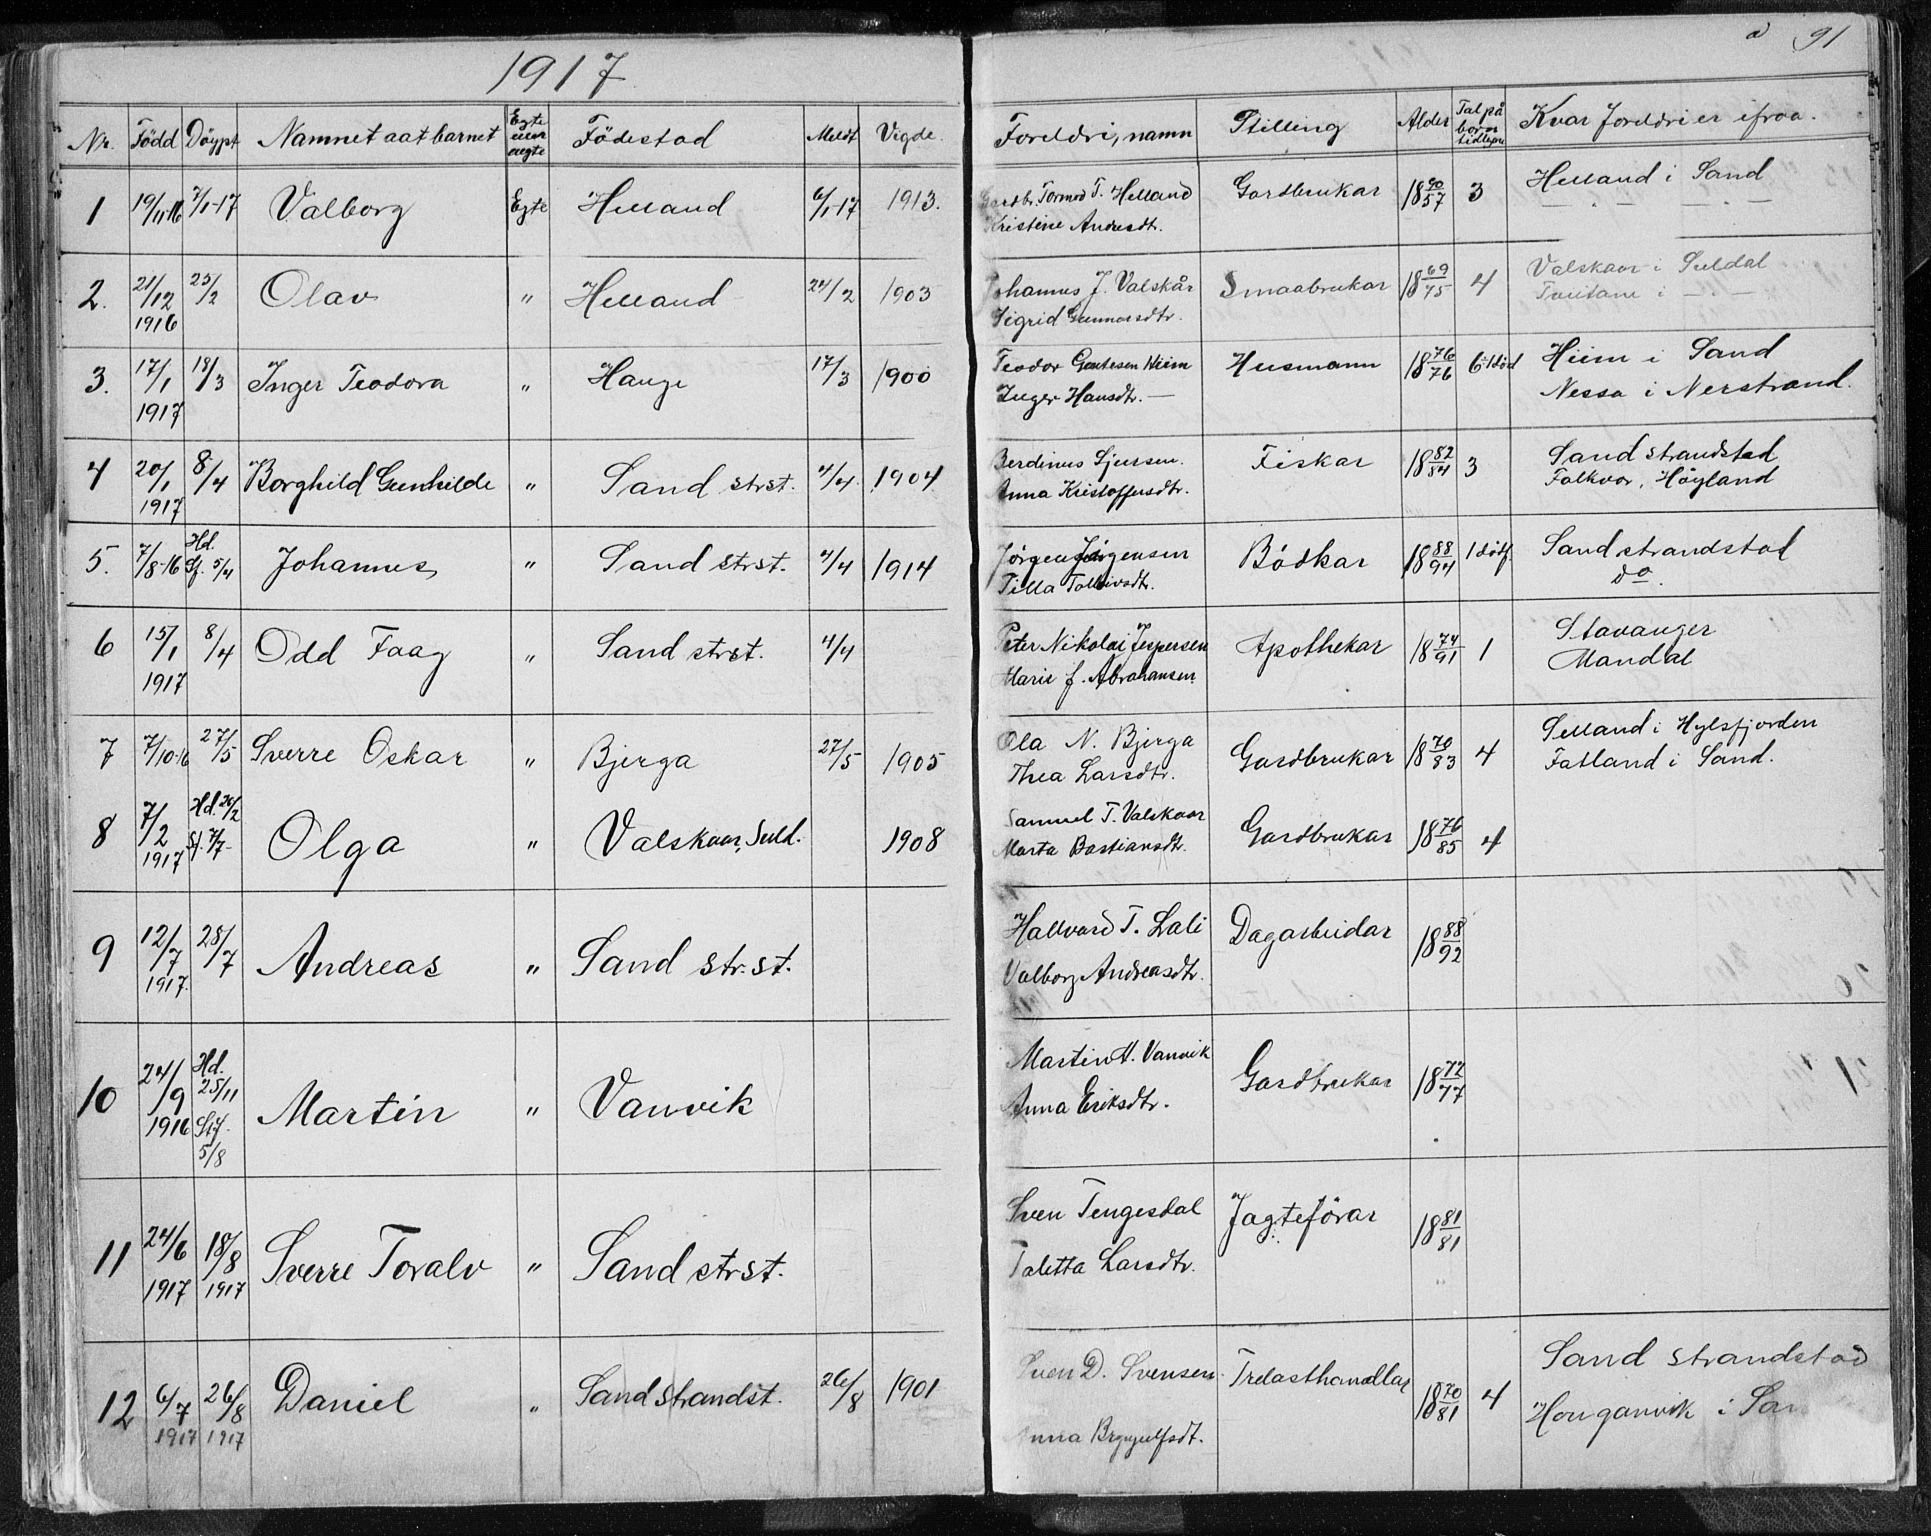 1917
91
Nr. Född Döypt Namnet aat barnet Egte eller uegte Födestad Meldt Vigde Foreldri, namn Stilling Alder Tal på born tidlegare Kvar foreldri er ifraa.
1 19/11-16 7/1-17 Valborg Egte Helland 6/1-17 1913. Tormod T. Helland Gardbrukar 18 90/57 3 Helland i Sand
Kristine Andresdtr. — . —
2. 21/12 1916 25/2 Olav " Helland 24/2 1903 Johannes J. Valskår Smaabrukar 18 69/75 4 Valskaar i Suldal
Sigrid Gunnarsdtr. Tveitane i — . —
3. 17/1 1917 18/3 Inger Teodora " Hauge 17/3 1900 Teodor Hiim Husmann 18 76/76 6 1 död Hiim i Sand
Inger Hansdtr. — Nessa i Nerstrand.
4 20/1 1917 8/4 Borghild Gunhilde " Sand strst. 4/4. 1904 Berdinus Sjursen. Fiskar 18 82/84 3 Sand strandstad
Anna Kristoffersdtr. Falkvor, Höyland
5. 7/8-16 Hd. Sf. 5/4 Johannes " Sand strst. 4/4 1914 Jørgen Jørgensen Bödkar 18 88/94 1 dödf. Sand strandstad
Tilla Tolleivsdtr. do.
6 15/1 1917 8/4 Odd Faag " Sand strst. 4/4 Peter Nikolai Jespersen Apothekar 18 74/91 1 Stavanger
Marie f. Abrahamsen Mandal
7 7/10-16 27/5 Sverre Oskar " Bjerga 27/5 1905 Ola N. Bjerga Gardbrukar 18 70/83 4 Selland i Hylsfjorden
Thea Larsdtr. Fatland i Sand.
8 7/2 1917 Hd. 20/2 Sf. 7/7 Olga " Valskaar, Suld. 1908 Samuel T. Valskaar Gardbrukar 18 76/85 4
Marta Bastiansdtr.
9 12/7 1917 28/7 Andreas " Sand str.st. Hallvard T. Lali Dagarbeidar 18 88/92
Valborg Andreasdtr.
10 24/9 1916 Hd. 25/11 Stf. 5/8 Martin " Vanvik Martin H. Vanvik Gardbrukar 18 72/77
Anna Eriksdtr.
11 24/6 1917 18/8 1917 Sverre Toralv " Sand strst. Sven Tengesdal Jagteförar 18 81/81
Taletta Larsdtr.
12 6/7 1917 26/8 1917 Daniel " Sand strandst. 26/8 1901 Sven D. Svensen Trelasthandlar 18 70/81 4 Sand strandstad
Anna Brynjulfsdt. Honganvik i San